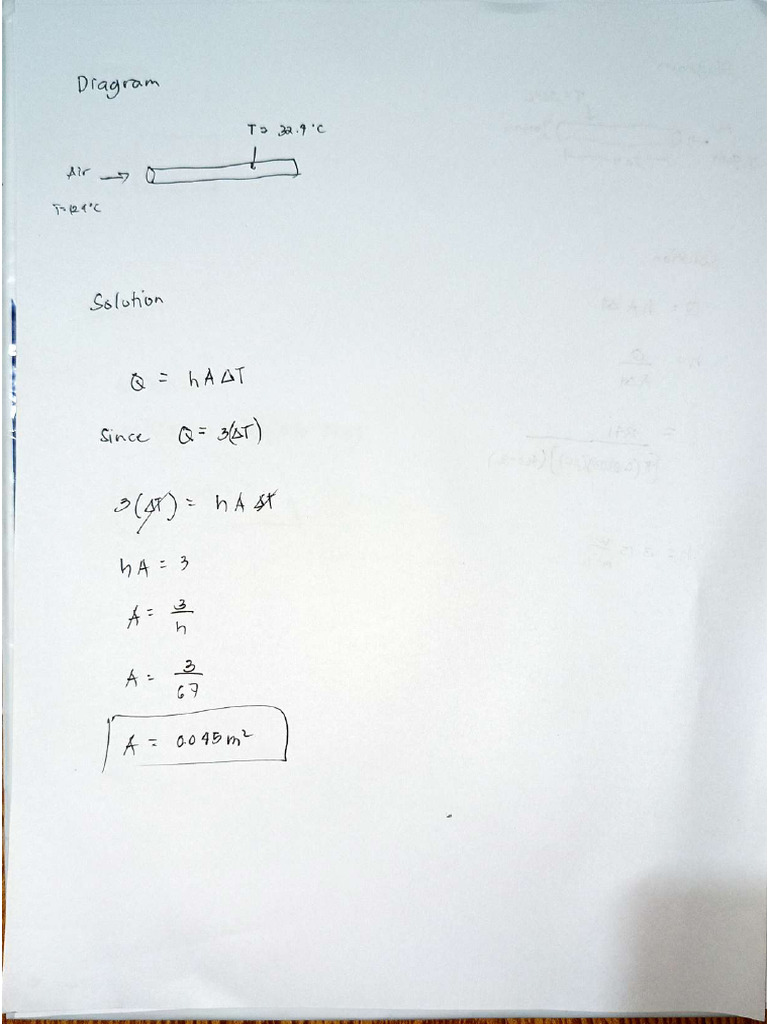 Diagram
T= 32.9°C
Air →
Solution
Q = hAΔT
Since Q= 3(ΔT)
3(ΔT) = hAΔT
hA = 3
A = 3/h
A = 3/67
A = 0.045 m²